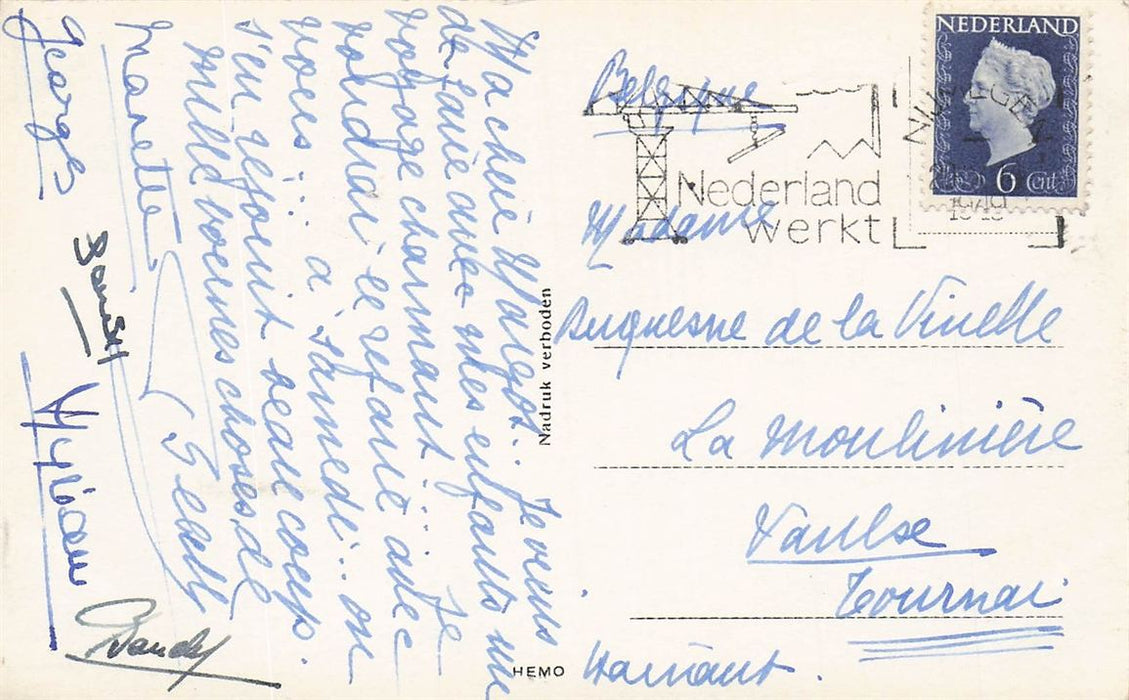 Ma chère Margot. Je viens
de faire avec mes enfants un
voyage charmant!... Je
voudrai le refaire avec
vous... à samedi... on
s'en réjouit beaucoup.
mille bonnes choses de
Manette
Georges
Nadruk verboden
HEMO
NEDERLAND
6 cent
NIJMEGEN
1949
Nederland
werkt
Belgique
Madame
Duquesne de la Vinelle
La Moulinière
Vaulse
Tournai
Hainaut.